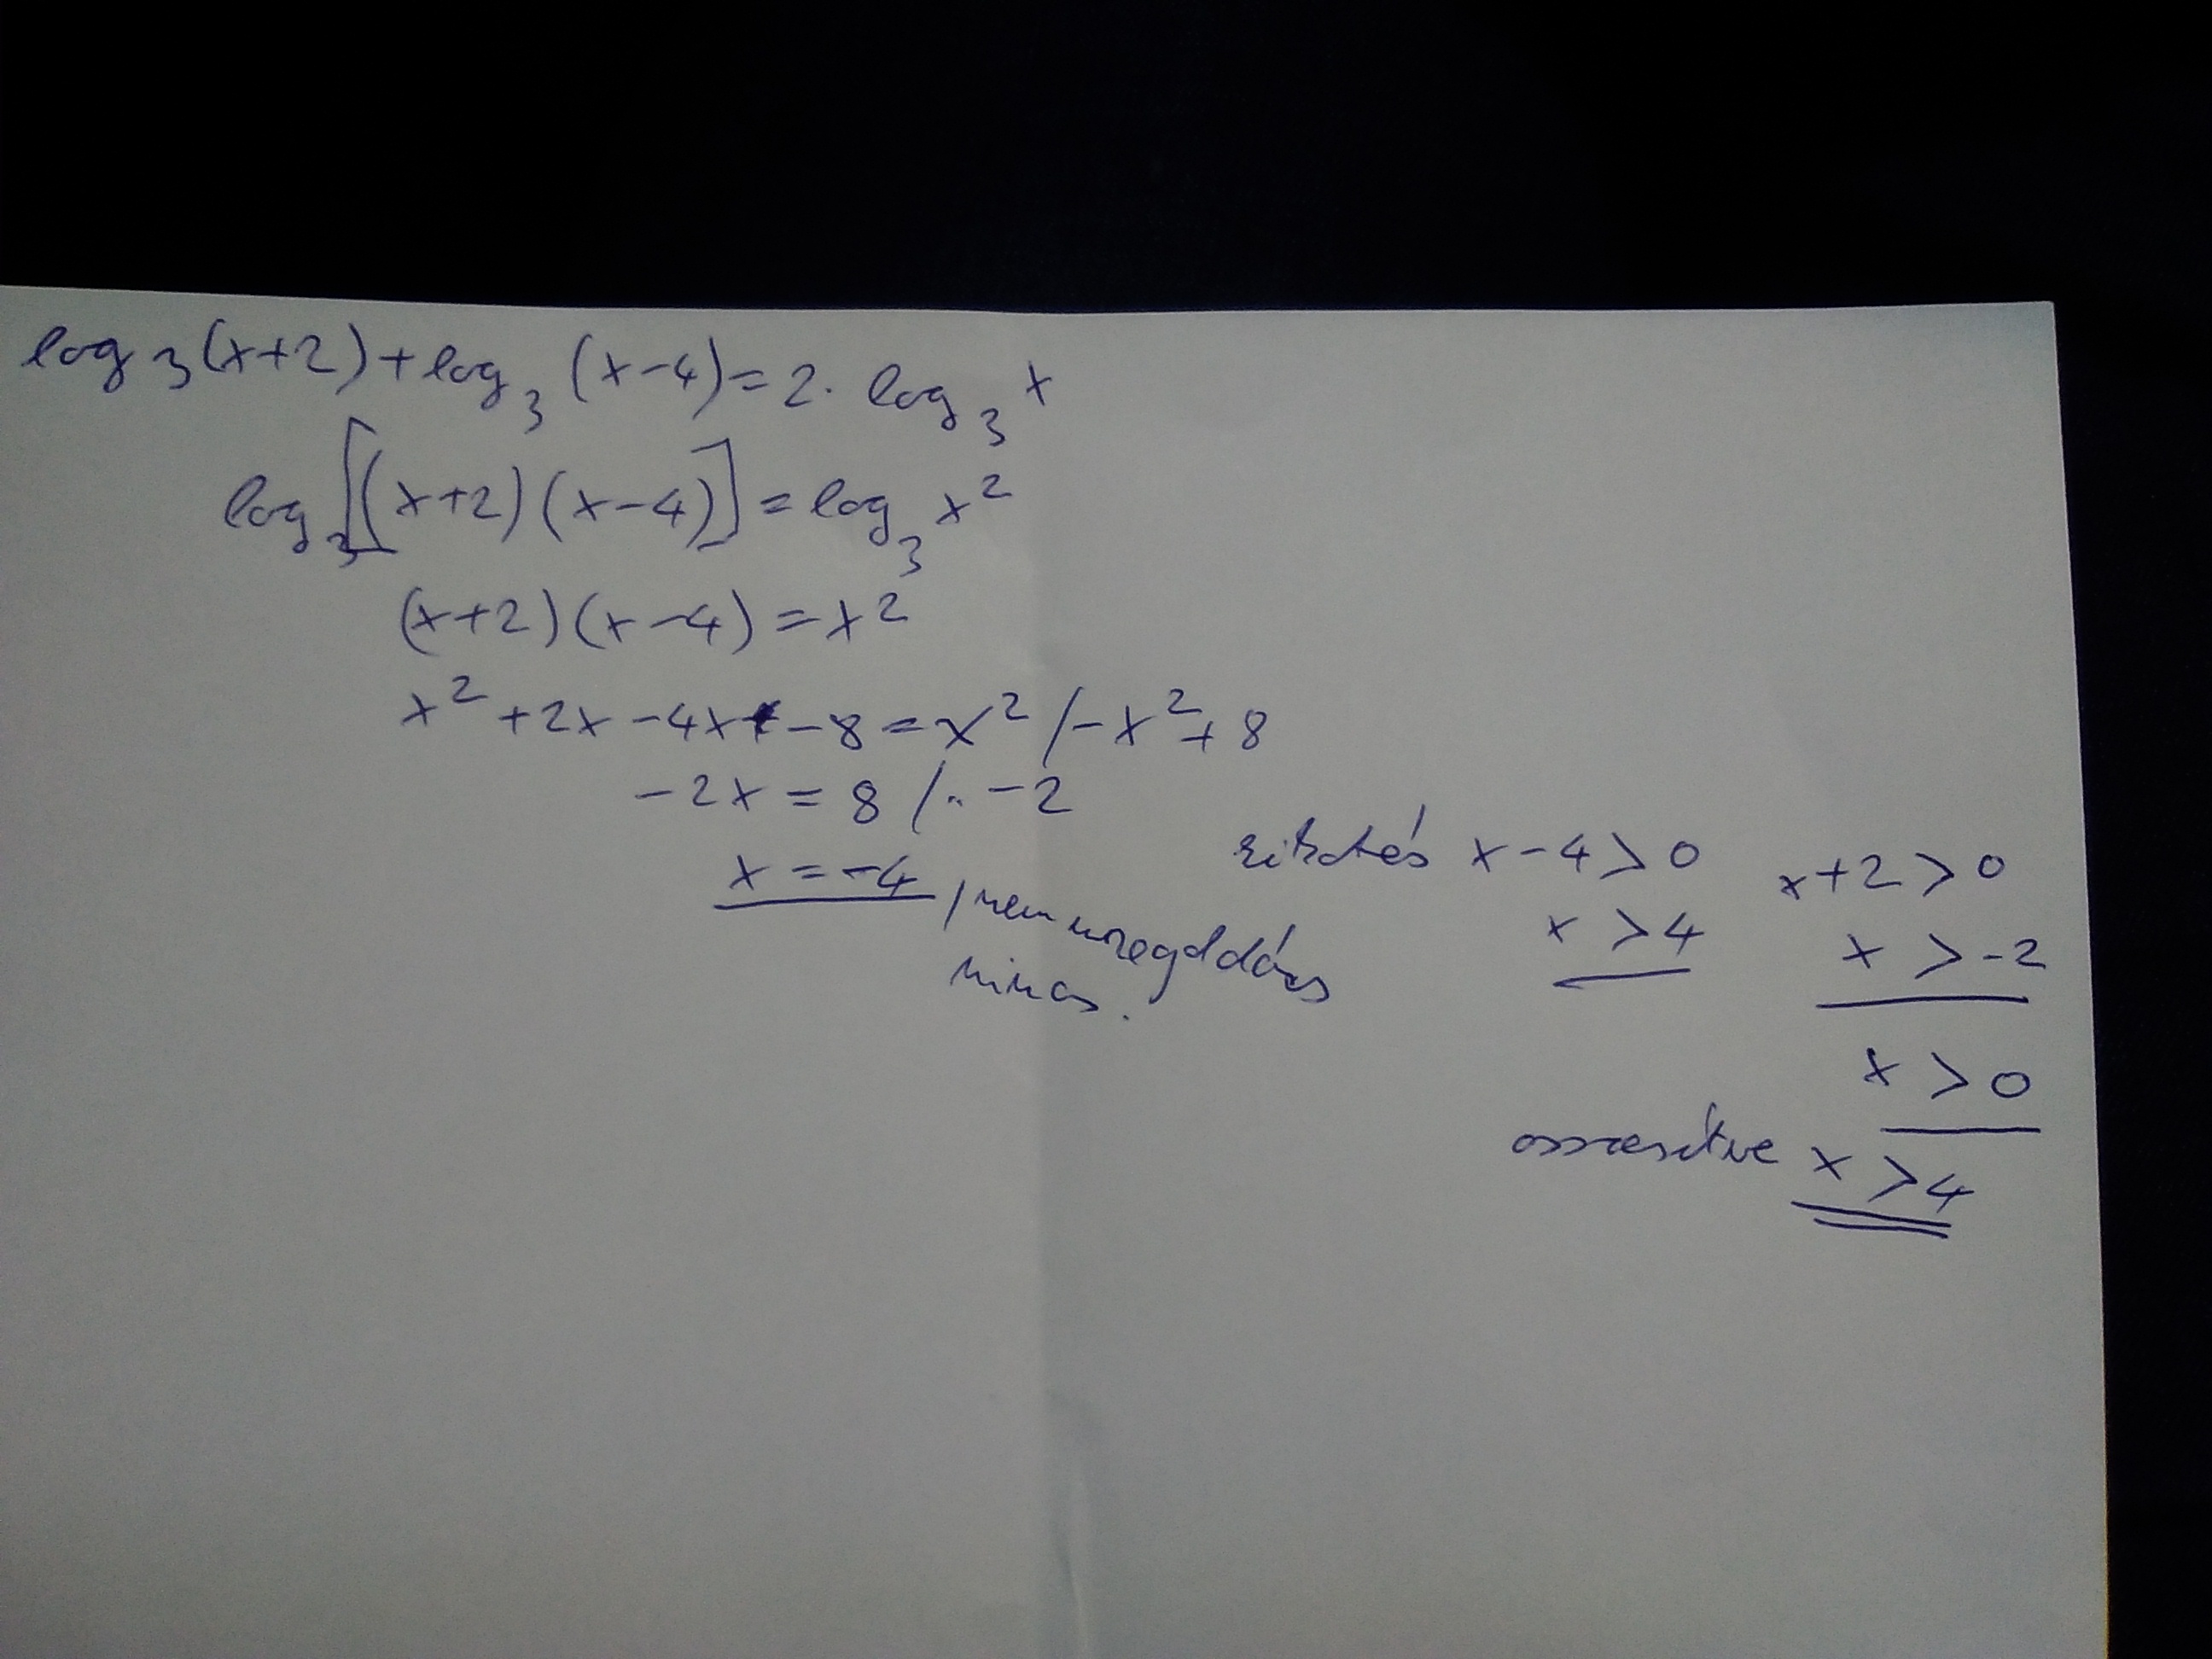 log₃(x+2)+log₃(x-4)=2·log₃x
log₃[(x+2)(x-4)]=log₃x²
(x+2)(x-4)=x²
x²+2x-4x-8=x² /-x²+8
-2x=8 /:-2
x=-4, nem megoldás
nincs.
kikötés x-4>0 x+2>0
x>4 x>-2
x>0
összesítve x>4